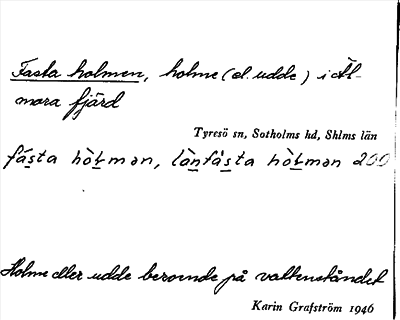 Fasta holmen, holme (el. udde) i Ål-
mora fjärd
Tyresö sn, Sotholms hd, Shlms län
fásta hòḻmən, lòṉfás̱ta hòḻmən 200
Holme eller udde beroende på vattenståndet
Karin Grafström 1946